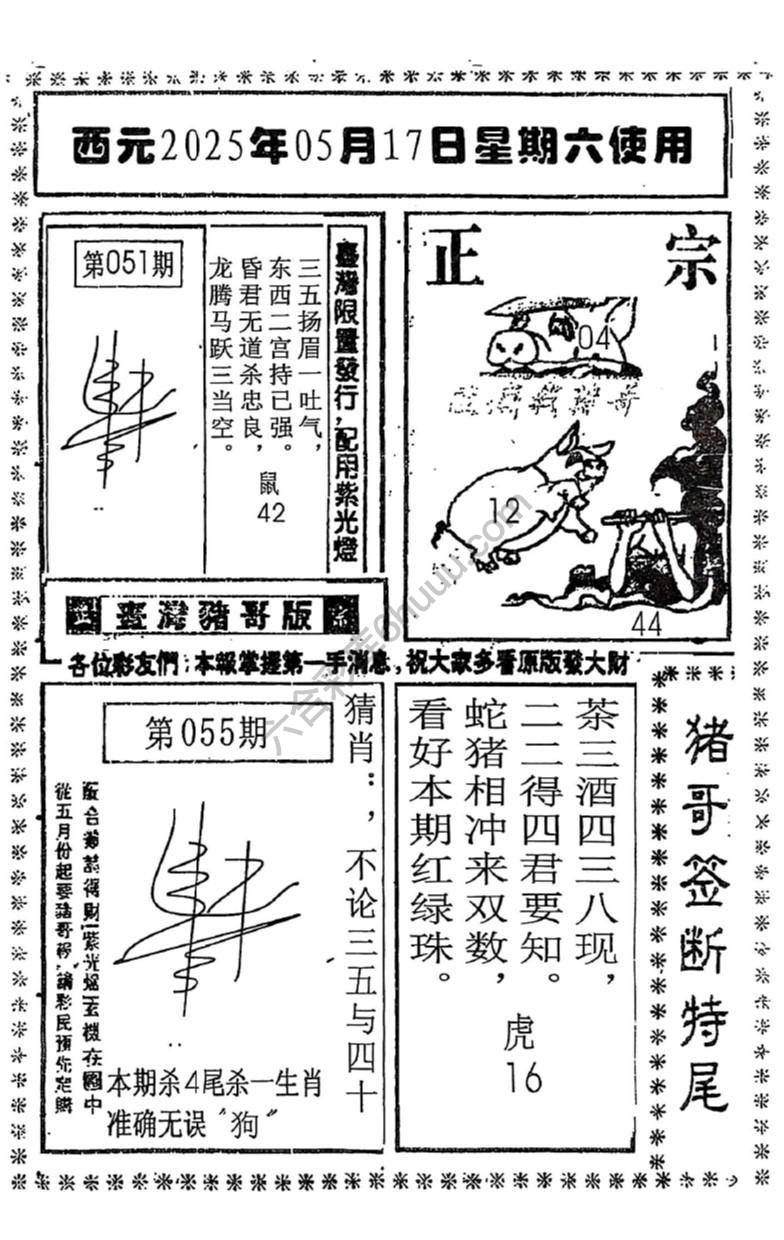 西元2025年05月17日星期六使用
第051期
三五扬眉一吐气，
东西二宫持已强。
昏君无道杀忠良，
龙腾马跃三当空。
鼠
42
臺灣限量發行，配用紫光燈
正宗
04
12
44
臺灣豬哥版
各位彩友們：本報掌握第一手消息，祝大家多看原版發大財
第055期
猜肖：，不论三五与四十
從五月份起要豬哥報，請彩民預先定購
本期杀4尾杀一生肖
准确无误“狗”
茶三酒四三八现，
二二得四君要知。
蛇猪相冲来双数，
看好本期红绿珠。
虎
16
猪哥签断特尾
六合彩库6huuu.com